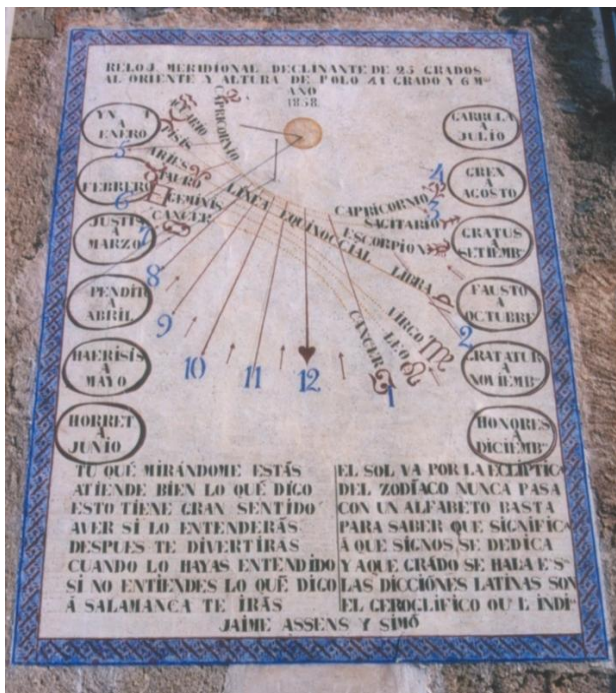 RELOJ MERIDIONAL DECLINANTE DE 25 GRADOS
AL ORIENTE Y ALTURA DE POLO 41 GRADO Y 6 Mᵒˢ
AÑO
1858.
YN
A
ENERO
FEBRERO
A
MARZO
A
ABRIL
A
MAYO
HORRET
A
JUNIO
GARRULA
A
JULIO
GREX
A
AGOSTO
GRATUS
A
SETIEMBᵉ
FAUSTO
A
OCTUBRE
GRATATUR
A
NOVIEMBᵉ
HONORES
A
DICIEMBᵉ
CAPRICORNIO
PISIS
ARIES
TAURO
GEMINIS
CANCER
LÍNEA EQUINOCCIAL
CAPRICORNIO
SAGITARIO
ESCORPION
LIBRA
VIRGO
LEO
CANCER
5
6
7
8
9
10
11
12
1
2
3
4
TU QUÉ MIRÁNDOME ESTÁS
ATIENDE BIEN LO QUÉ DIGO
ESTO TIENE GRAN SENTIDO
AVER SI LO ENTENDERÁS
DESPUES TE DIVERTIRAS
CUANDO LO HAYAS ENTENDIDO
SI NO ENTIENDES LO QUÉ DIGO
Á SALAMANCA TE IRÁS
EL SOL VA POR LA ECLÍPTICA
DEL ZODÍACO NUNCA PASA
CON UN ALFABETO BASTA
PARA SABER QUE SIGNIFICA
Á QUE SIGNOS SE DEDICA
Y A QUE GRÁDO SE HALA
LAS DICCIÓNES LATINAS SON
EL GEROGLIFICO
JAIME ASSENS Y SIMÓ